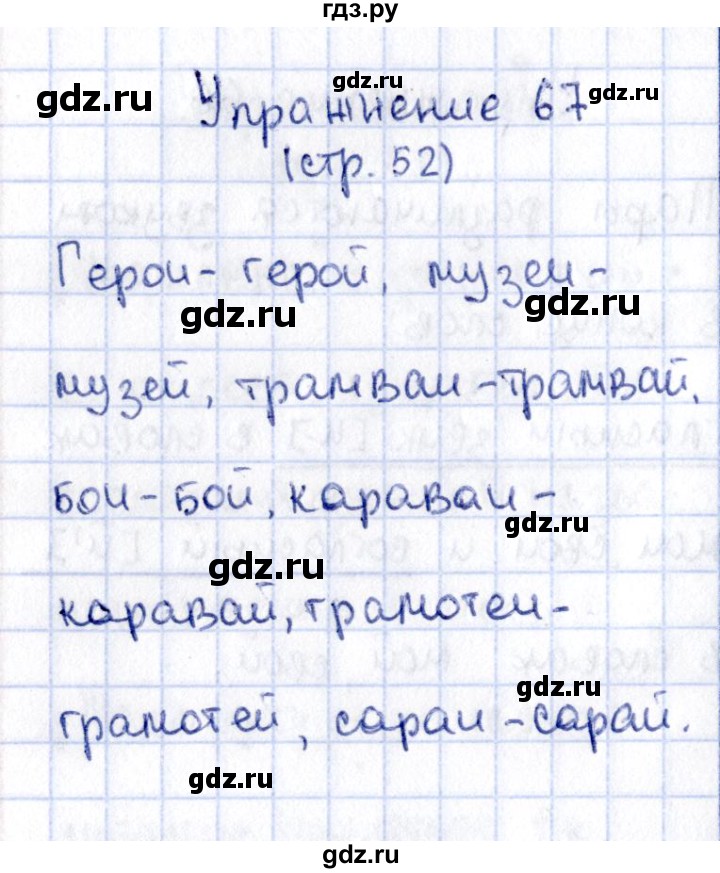 гдз.ру
gdz.ru
gdz.ru
gdz.ru
Упражнение 67
(стр. 52)
Герои - герой, музеи -
gdz.ru
gdz.ru
музей, трамваи - трамвай,
бои - бой, караваи -
gdz.ru
gdz.ru
каравай, грамотеи -
gdz.ru
грамотей, сараи - сарай.
gdz.ru
gdz.ru